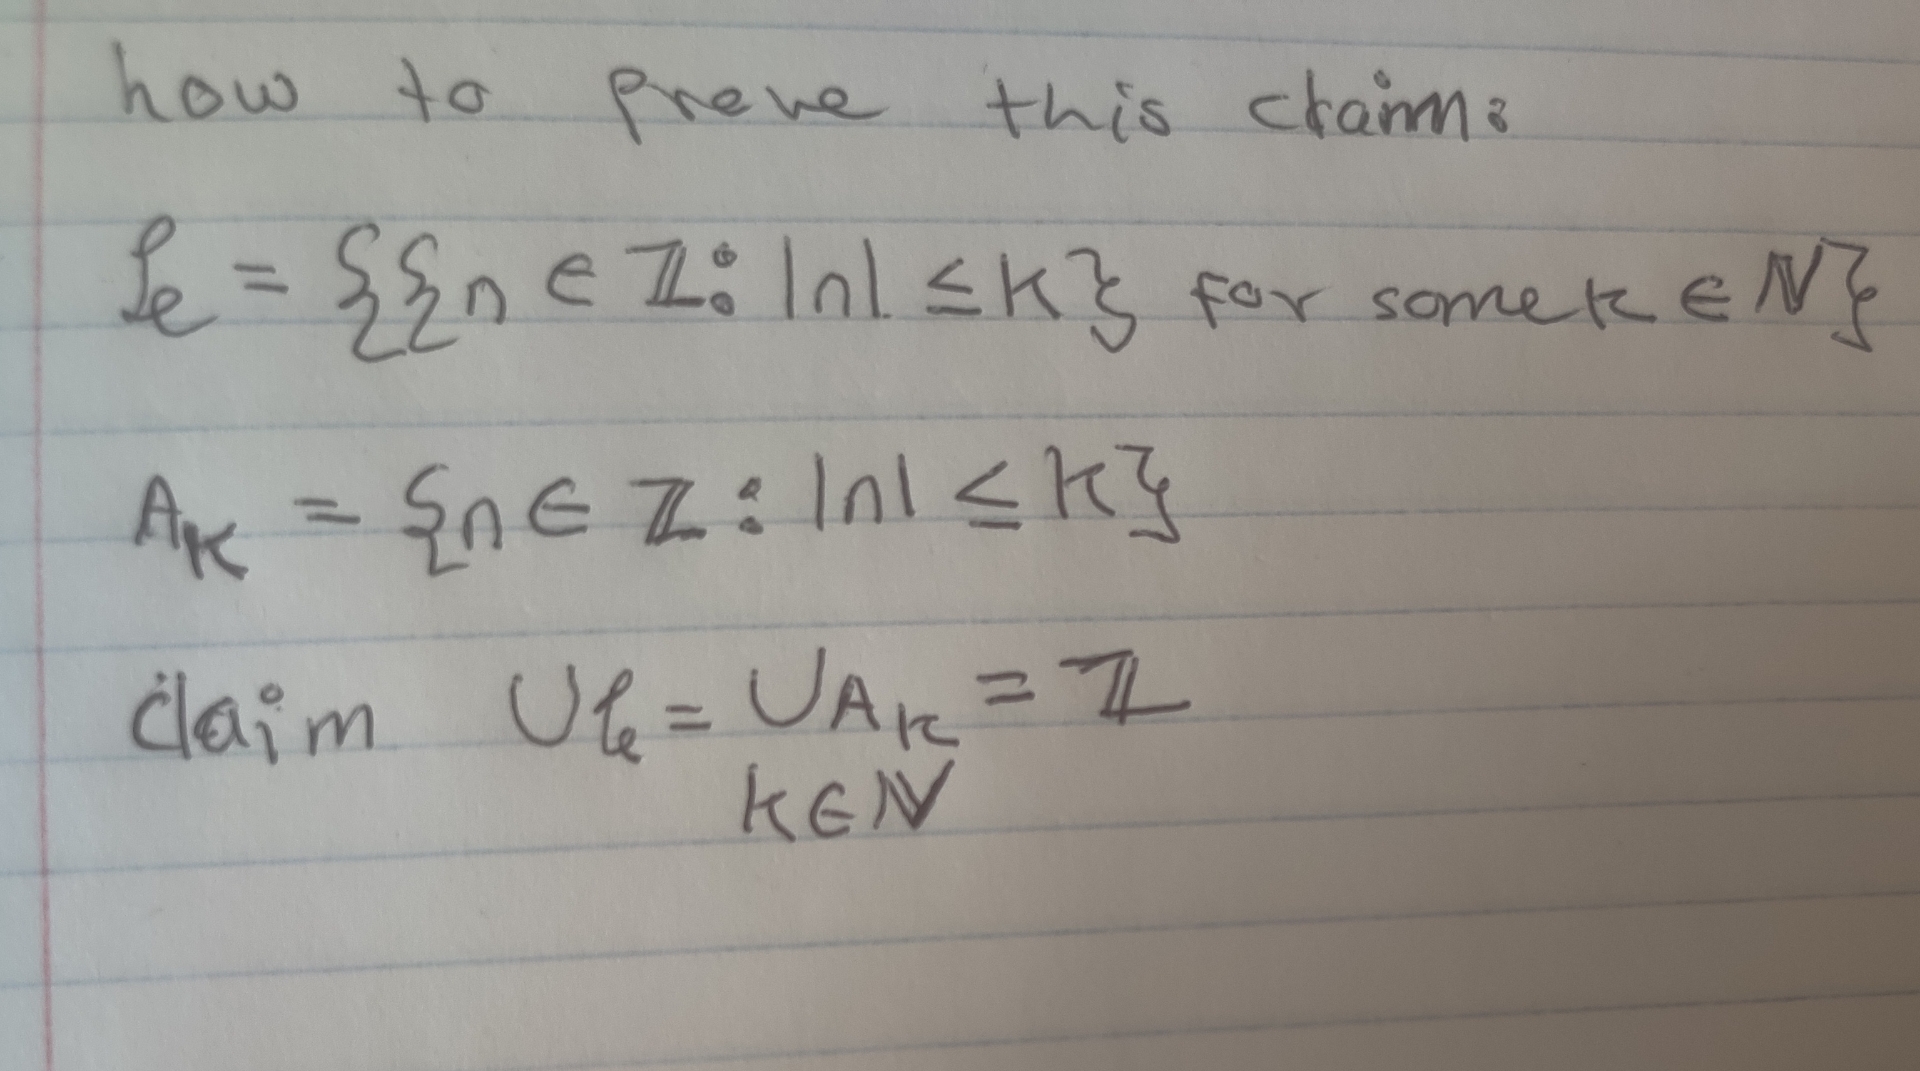 how to prove this claim:
ℓe = {{n ∈ ℤ: |n| ≤ K} for some k ∈ ℕ}
A_K = {n ∈ ℤ: |n| ≤ K}
claim ∪ℓe = ∪A_K = ℤ
K∈ℕ